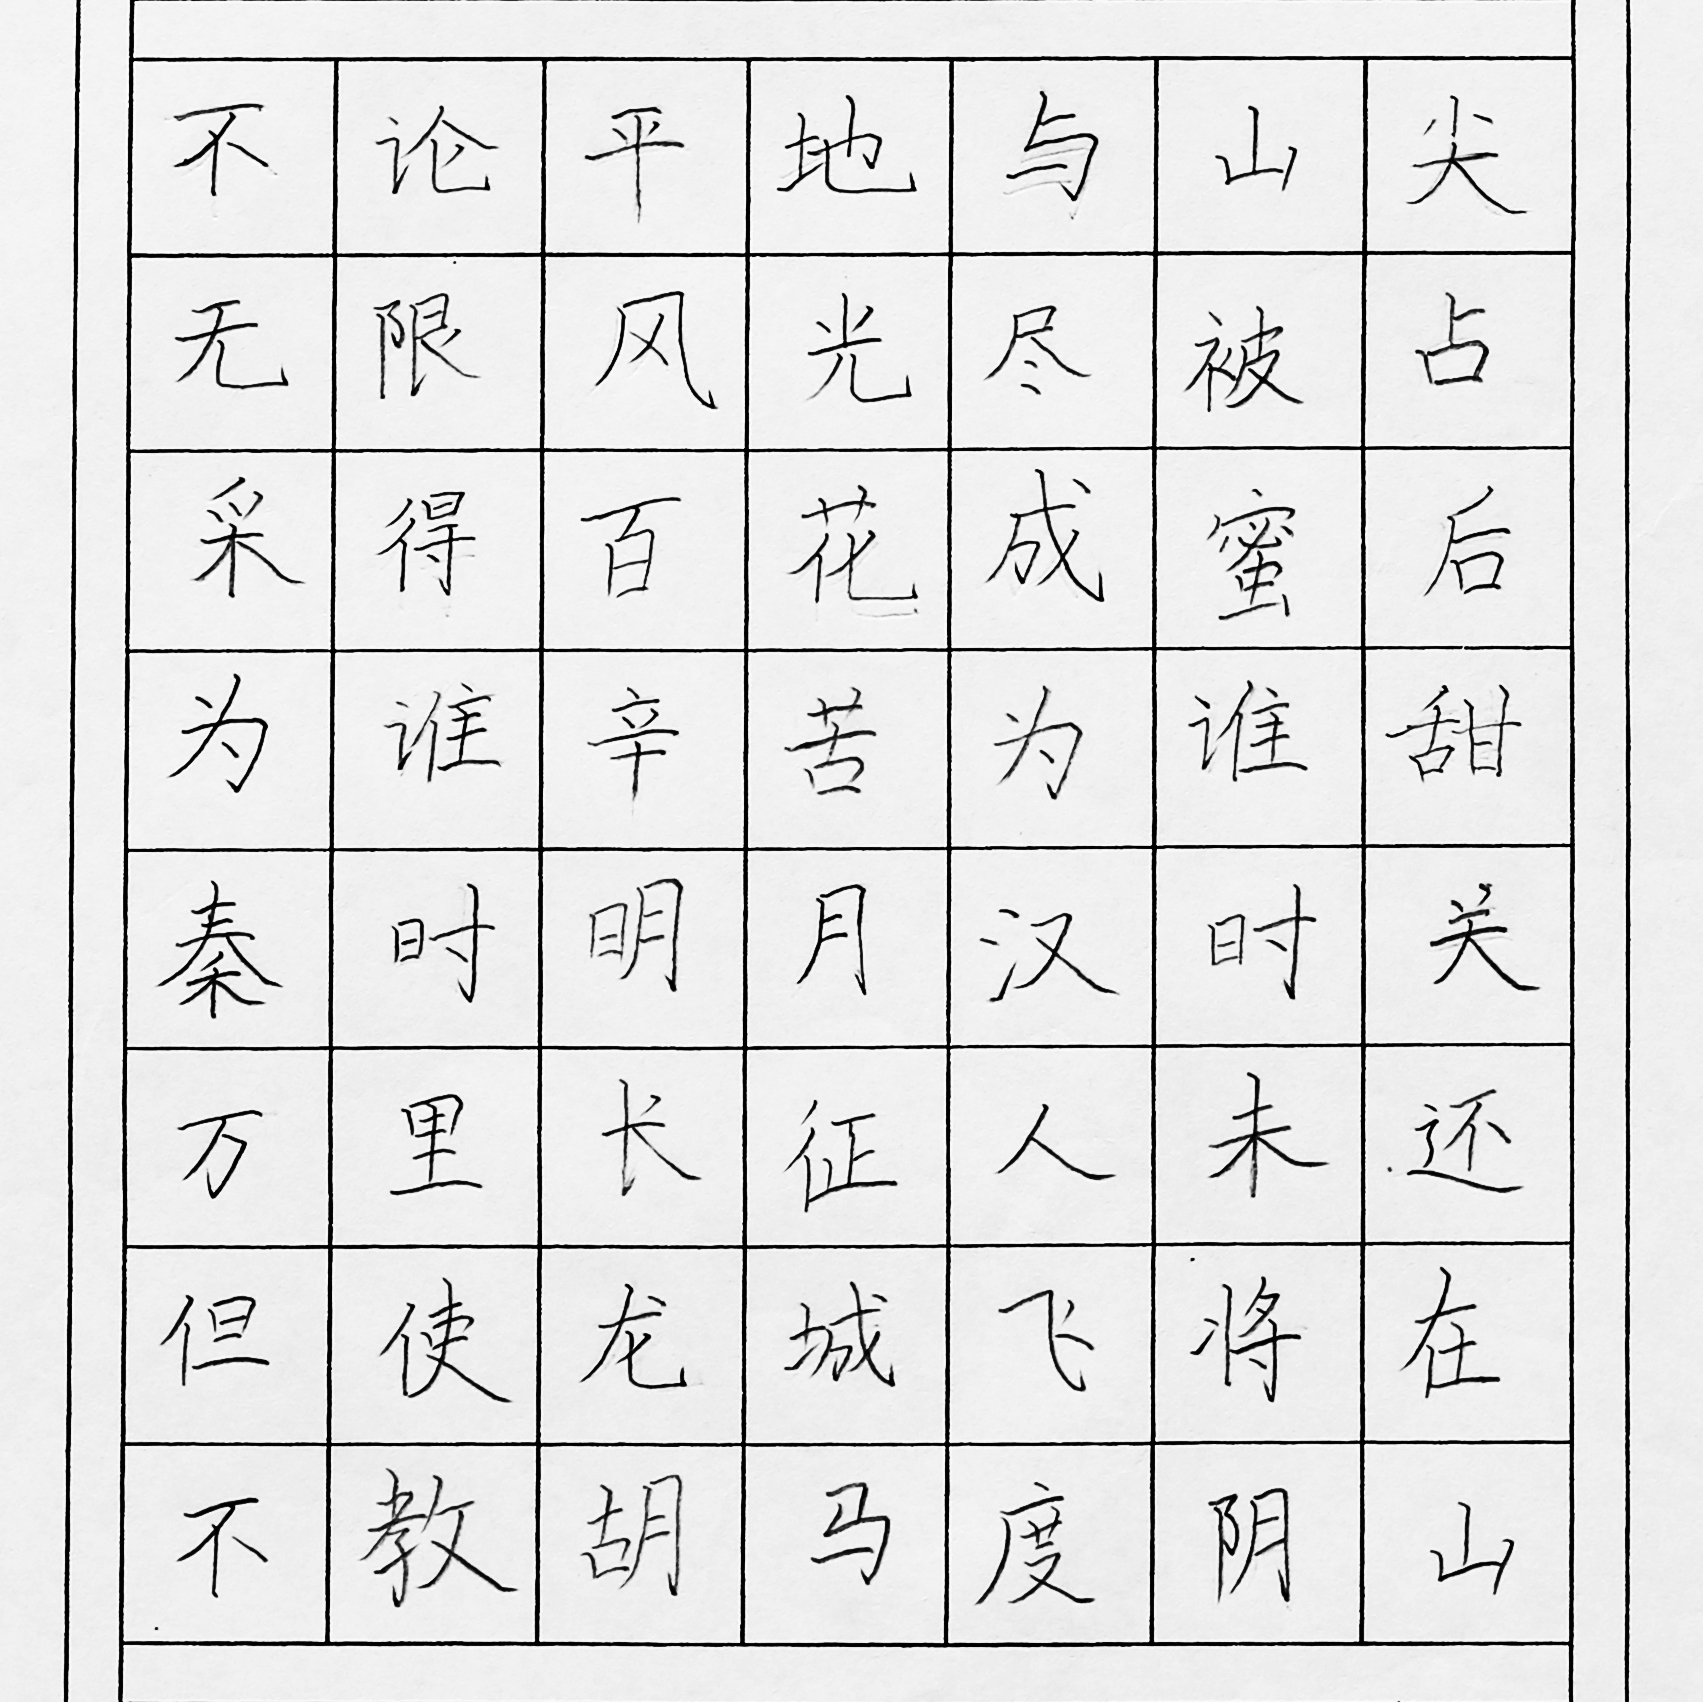 不论平地与山尖
无限风光尽被占
采得百花成蜜后
为谁辛苦为谁甜
秦时明月汉时关
万里长征人未还
但使龙城飞将在
不教胡马度阴山